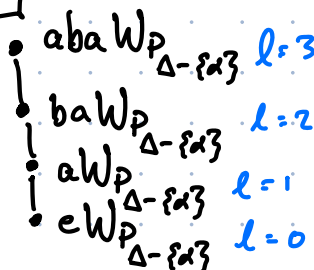 abaW_{P_{Δ-{α}}} l=3
baW_{P_{Δ-{α}}} l=2
aW_{P_{Δ-{α}}} l=1
eW_{P_{Δ-{α}}} l=0